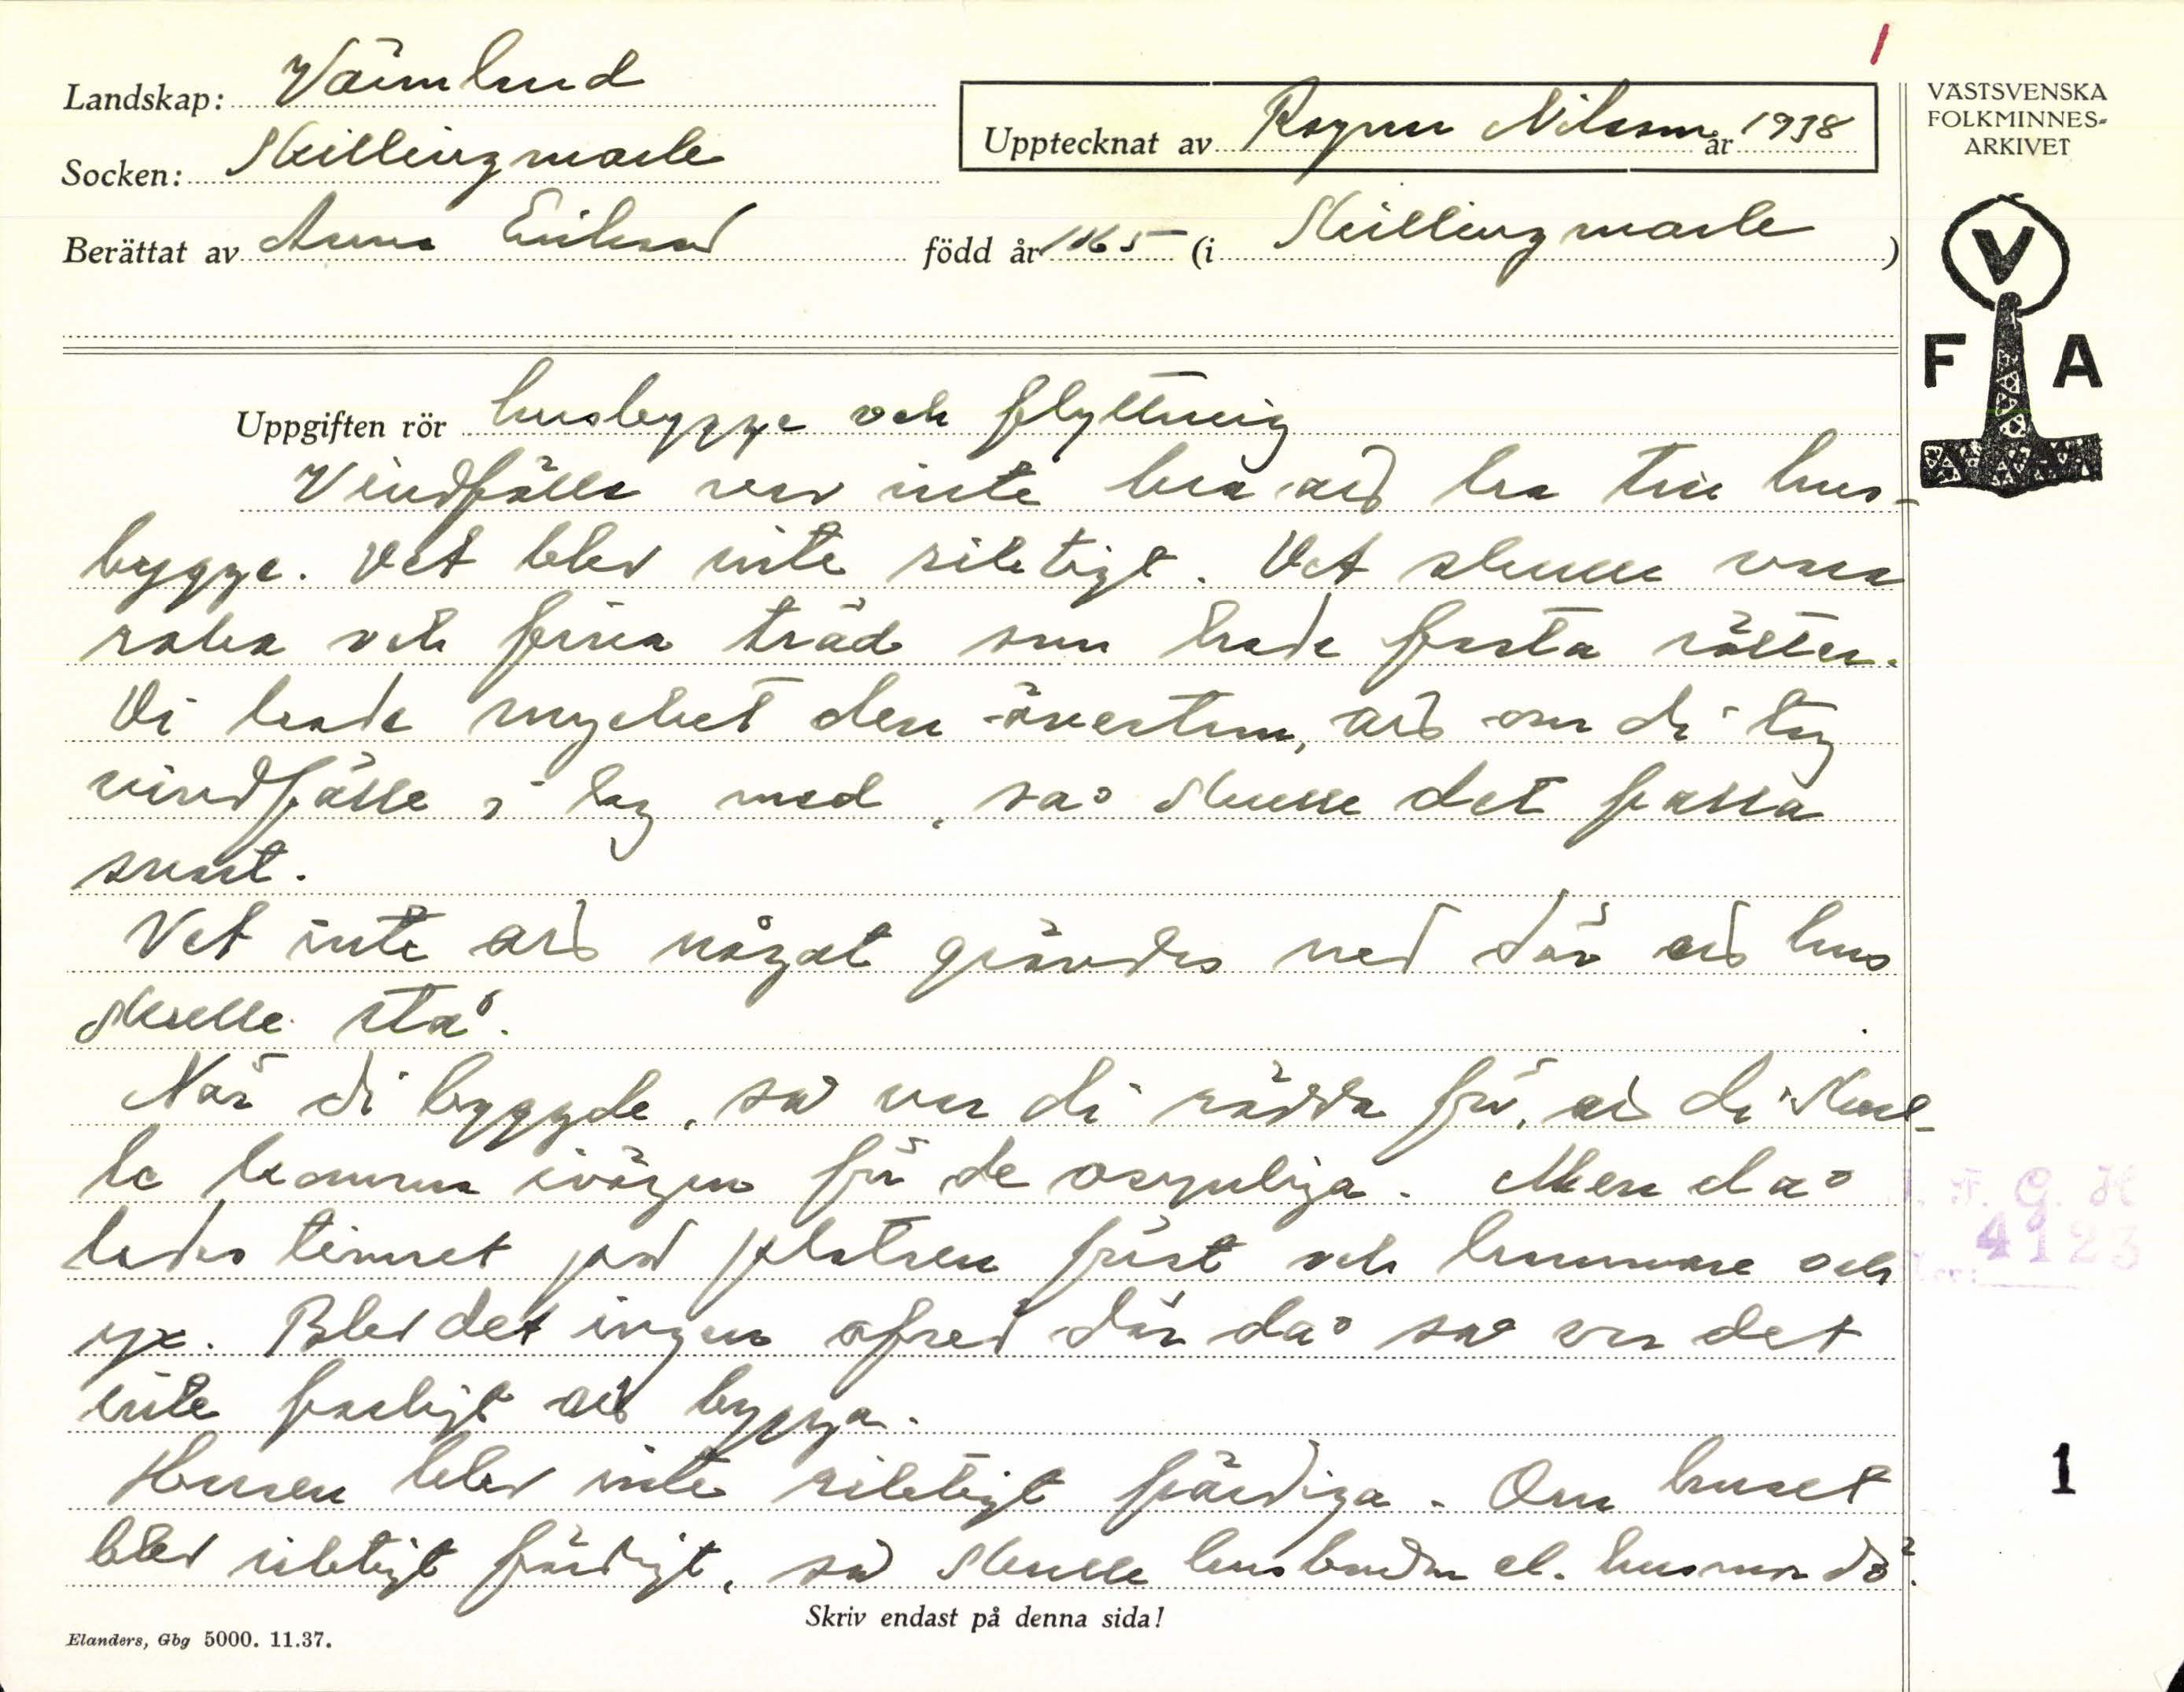 1
Landskap: Värmland
Socken: Skillingmark
Upptecknat av Ragnar Nilsson år 1938
Berättat av Anna Eriksson född år 1865 (i Skillingmark)
VÄSTSVENSKA
FOLKMINNES-
ARKIVET
V
F A
Uppgiften rör husbygge och flyttning
Vindfälle var inte bra att ha till hus-
bygge. Det blev inte riktigt. Det skulle vara
raka och fina träd som hade fasta rötter.
Di hade mycket den övertron, att om di tog
vindfälle i lag med, så skulle det passa
snart.
Vet inte att något grävdes ned där att hus
skulle stå.
När di byggde, så var di rädda för, att di skul-
le komma ivägen för de osynliga. Men då
lades timret på platsen först och hammare och
yx. Blev det ingen ofred där då så var det
inte farligt att bygga.
Husen blev inte riktigt färdiga. Om huset
blev riktigt färdigt, så skulle husbonden el. husmor dö.
I. F. G. H.
4123
1
Skriv endast på denna sida!
Elanders, Gbg 5000. 11.37.